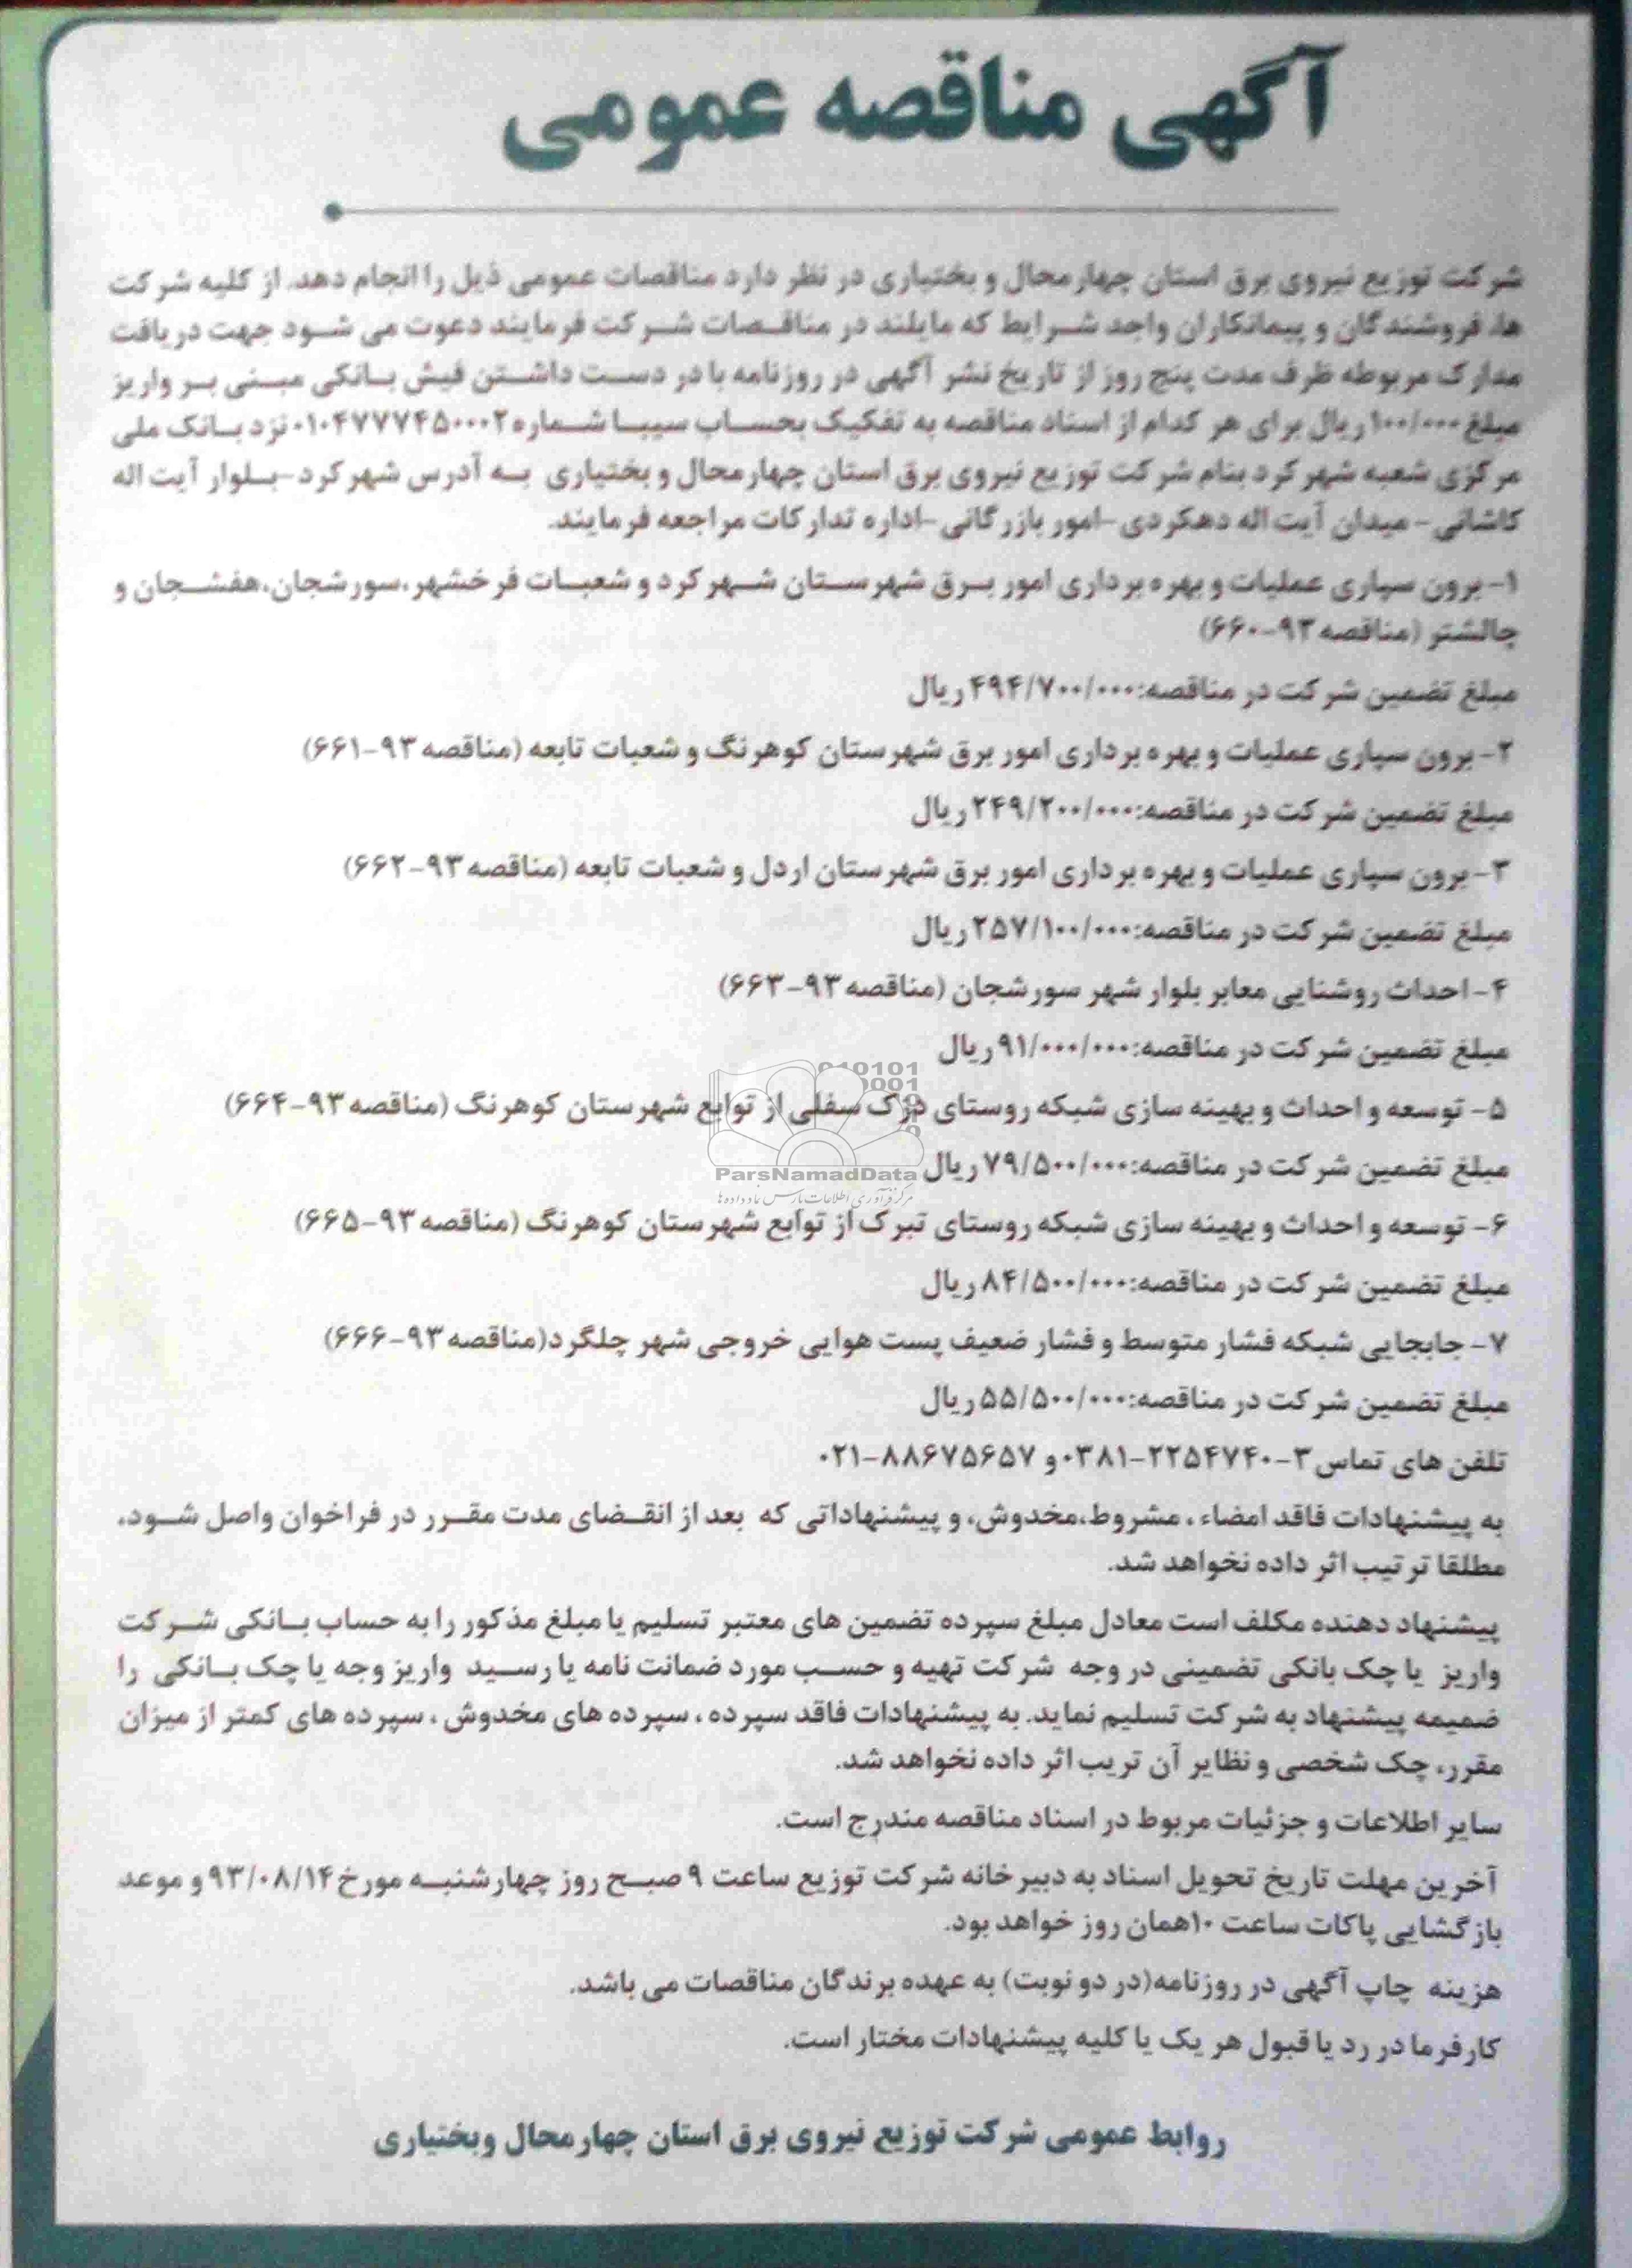 آگهی مناقصه عمومی
شرکت توزیع نیروی برق استان چهارمحال و بختیاری در نظر دارد مناقصات عمومی ذیل را انجام دهد. از کلیه شرکت
ها، فروشندگان و پیمانکاران واجد شرایط که مایلند در مناقصات شرکت فرمایند دعوت می شود جهت دریافت
مدارک مربوطه ظرف مدت پنج روز از تاریخ نشر آگهی در روزنامه با در دست داشتن فیش بانکی مبنی بر واریز
مبلغ ۱۰۰/۰۰۰ ریال برای هر کدام از اسناد مناقصه به تفکیک بحساب سیبا شماره ۰۱۰۴۷۷۷۴۵۰۰۰۲ نزد بانک ملی
مرکزی شعبه شهرکرد بنام شرکت توزیع نیروی برق استان چهارمحال و بختیاری به آدرس شهرکرد -بلوار آیت اله
کاشانی- میدان آیت اله دهکردی-امور بازرگانی-اداره تدارکات مراجعه فرمایند.
۱- برون سپاری عملیات و بهره برداری امور برق شهرستان شهرکرد و شعبات فرخشهر،سورشجان،هفشجان و
چالشتر (مناقصه ۹۳-۶۶۰)
مبلغ تضمین شرکت در مناقصه:۴۹۴/۷۰۰/۰۰۰ ریال
۲- برون سپاری عملیات و بهره برداری امور برق شهرستان کوهرنگ و شعبات تابعه (مناقصه ۹۳-۶۶۱)
مبلغ تضمین شرکت در مناقصه:۲۴۹/۲۰۰/۰۰۰ ریال
۳- برون سپاری عملیات و بهره برداری امور برق شهرستان اردل و شعبات تابعه (مناقصه ۹۳-۶۶۲)
مبلغ تضمین شرکت در مناقصه:۲۵۷/۱۰۰/۰۰۰ ریال
۴- احداث روشنایی معابر بلوار شهر سورشجان (مناقصه ۹۳-۶۶۳)
مبلغ تضمین شرکت در مناقصه:۹۱/۰۰۰/۰۰۰ ریال
۵- توسعه و احداث و بهینه سازی شبکه روستای دزک سفلی از توابع شهرستان کوهرنگ (مناقصه ۹۳-۶۶۴)
مبلغ تضمین شرکت در مناقصه:۷۹/۵۰۰/۰۰۰ ریال
ParsNamadData
مرکز فرآوری اطلاعات پارس نماد داده ها
۶- توسعه و احداث و بهینه سازی شبکه روستای تبرک از توابع شهرستان کوهرنگ (مناقصه ۹۳-۶۶۵)
مبلغ تضمین شرکت در مناقصه:۸۴/۵۰۰/۰۰۰ ریال
۷- جابجایی شبکه فشار متوسط و فشار ضعیف پست هوایی خروجی شهر چلگرد(مناقصه ۹۳-۶۶۶)
مبلغ تضمین شرکت در مناقصه:۵۵/۵۰۰/۰۰۰ ریال
تلفن های تماس ۳-۲۲۵۴۷۴۰-۰۳۸۱ و ۸۸۶۷۵۶۵۷-۰۲۱
به پیشنهادات فاقد امضاء ، مشروط،مخدوش، و پیشنهاداتی که بعد از انقضای مدت مقرر در فراخوان واصل شود،
مطلقا ترتیب اثر داده نخواهد شد.
پیشنهاد دهنده مکلف است معادل مبلغ سپرده تضمین های معتبر تسلیم یا مبلغ مذکور را به حساب بانکی شرکت
واریز یا چک بانکی تضمینی در وجه شرکت تهیه و حسب مورد ضمانت نامه یا رسید واریز وجه یا چک بانکی را
ضمیمه پیشنهاد به شرکت تسلیم نماید. به پیشنهادات فاقد سپرده ، سپرده های مخدوش ، سپرده های کمتر از میزان
مقرر، چک شخصی و نظایر آن تریب اثر داده نخواهد شد.
سایر اطلاعات و جزئیات مربوط در اسناد مناقصه مندرج است.
آخرین مهلت تاریخ تحویل اسناد به دبیرخانه شرکت توزیع ساعت ۹ صبح روز چهارشنبه مورخ ۹۳/۰۸/۱۴ و موعد
بازگشایی پاکات ساعت ۱۰همان روز خواهد بود.
هزینه چاپ آگهی در روزنامه(در دو نوبت) به عهده برندگان مناقصات می باشد.
کارفرما در رد یا قبول هر یک یا کلیه پیشنهادات مختار است.
روابط عمومی شرکت توزیع نیروی برق استان چهارمحال وبختیاری